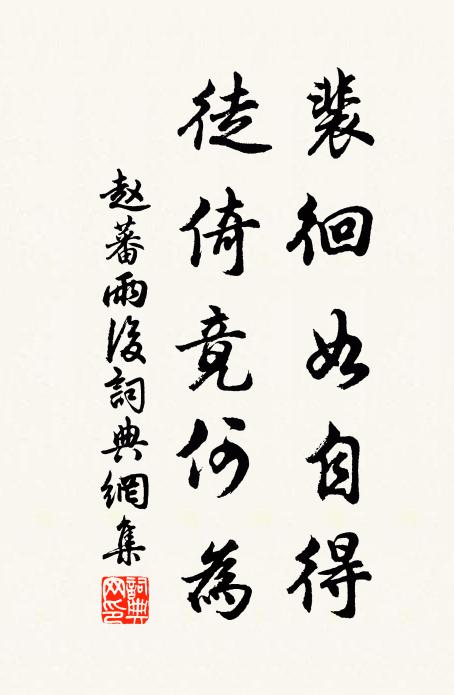 裴徊如自得
徒倚竟何為
赵蕃雨後詞典網集
詞典網印